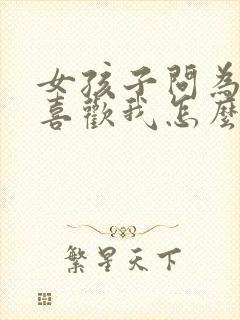 女孩子問為
喜歡我怎麼
繁星天下